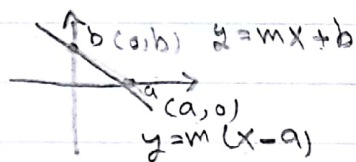 b (0,b) y=mx+b
a
(a,0)
y=m(x-a)